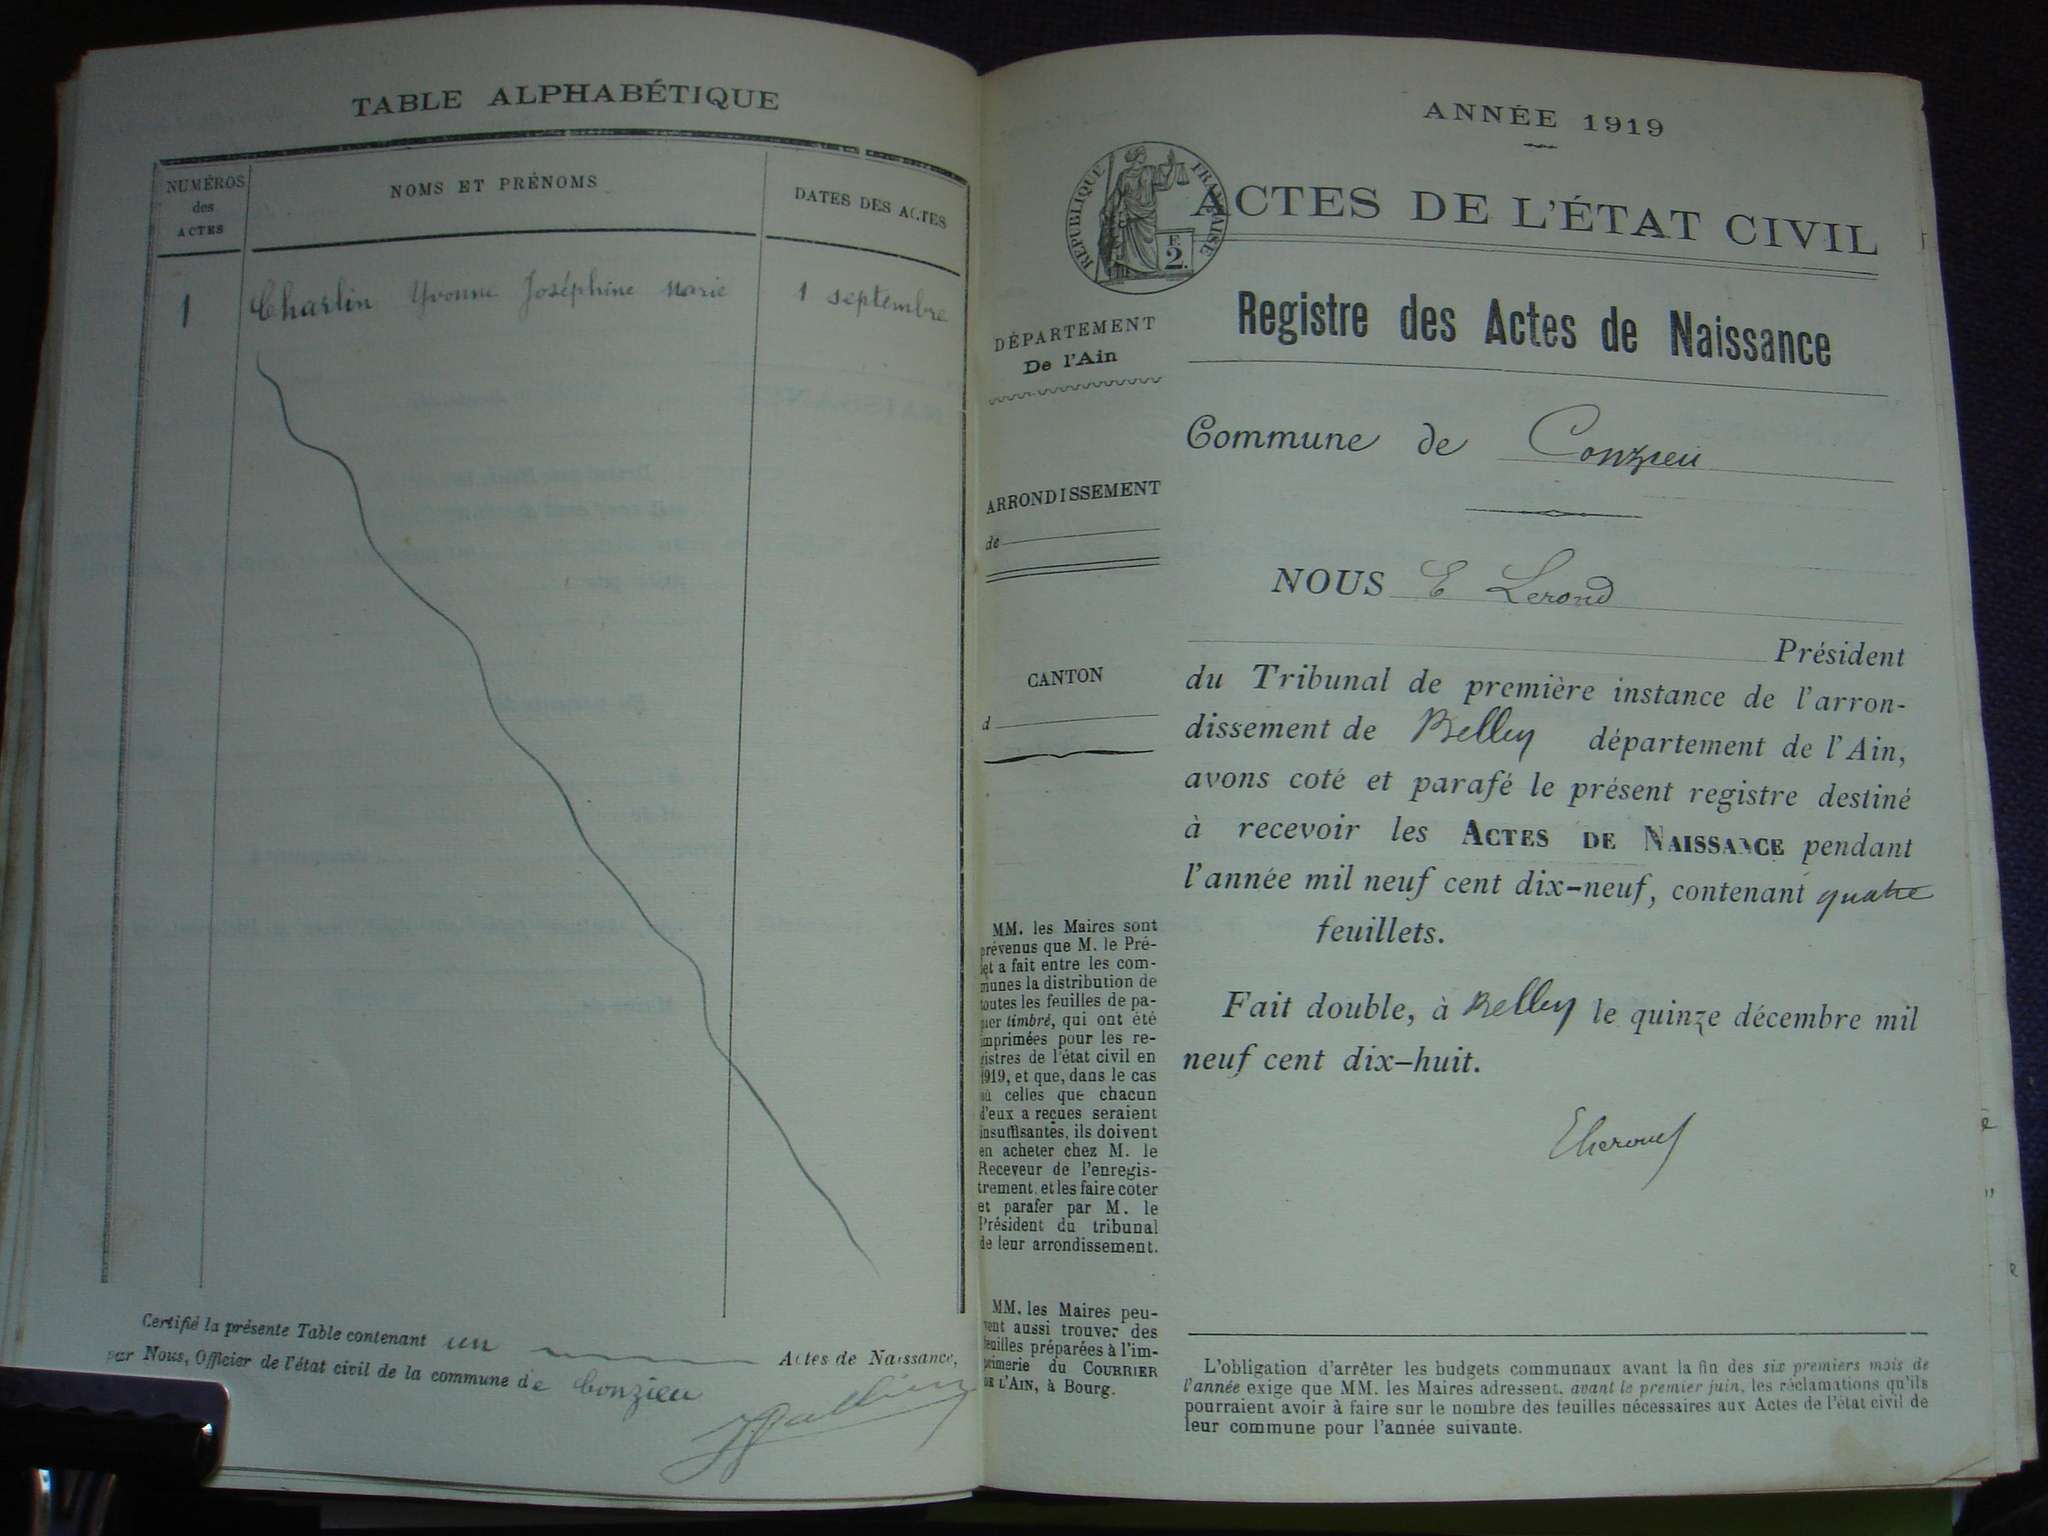 TABLE ALPHABÉTIQUE
NUMÉROS
des
ACTES
NOMS ET PRÉNOMS
DATES DES ACTES
1 Charlin Yvonne Joséphine Marie 1 septembre
Certifié la présente Table contenant un Actes de Naissance,
par Nous, Officier de l'état civil de la commune de Conzieu
ANNÉE 1919
RÉPUBLIQUE FRANÇAISE
F.
2.
ACTES DE L'ÉTAT CIVIL
Registre des Actes de Naissance
DÉPARTEMENT
De l'Ain
ARRONDISSEMENT
de
CANTON
d
MM. les Maires sont
prévenus que M. le Pré-
fet a fait entre les com-
munes la distribution de
toutes les feuilles de pa-
pier timbré, qui ont été
imprimées pour les re-
gistres de l'état civil en
1919, et que, dans le cas
où celles que chacun
d'eux a reçues seraient
insuffisantes, ils doivent
en acheter chez M. le
Receveur de l'enregis-
trement, et les faire coter
et parafer par M. le
Président du tribunal
de leur arrondissement.
MM. les Maires peu-
vent aussi trouver des
feuilles préparées à l'im-
primerie du COURRIER
DE L'AIN, à Bourg.
Commune de Conzieu
NOUS E Lerond
Président
du Tribunal de première instance de l'arron-
dissement de Belley département de l'Ain,
avons coté et parafé le présent registre destiné
à recevoir les ACTES DE NAISSANCE pendant
l'année mil neuf cent dix-neuf, contenant quatre
feuillets.
Fait double, à Belley le quinze décembre mil
neuf cent dix-huit.
L'obligation d'arrêter les budgets communaux avant la fin des six premiers mois de
l'année exige que MM. les Maires adressent, avant le premier juin, les réclamations qu'ils
pourraient avoir à faire sur le nombre des feuilles nécessaires aux Actes de l'état civil de
leur commune pour l'année suivante.